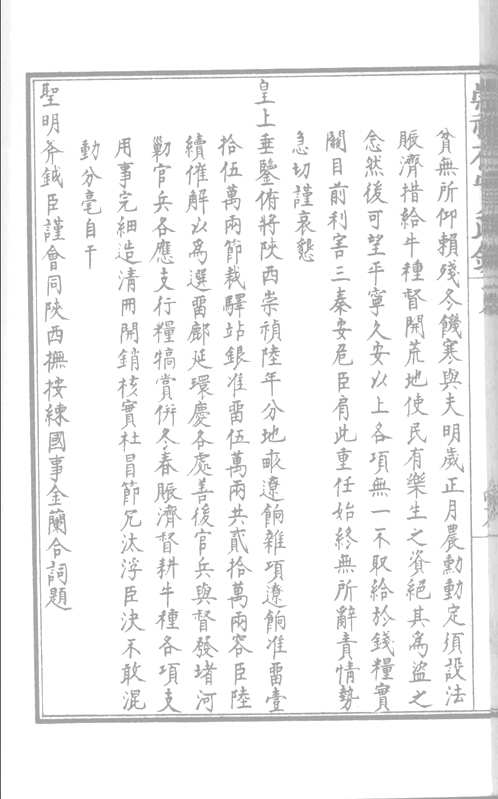 貧無所仰賴殘冬饑寒與夫明歲正月農動動定須設法
賑濟措給牛種督開荒地使民有樂生之資絕其為盜之
念然後可望平寧久安以上各項無一不取給於錢糧實
關目前利害三秦安危臣肩此重任始終無所辭責情勢
急切謹哀懇
皇上垂鑒俯將陝西崇禎陸年分地畝遼餉雜項遼餉准畱壹
拾伍萬兩節裁驛站銀准畱伍萬兩共貳拾萬兩容臣陸
續催解以為選畱鄜延環慶各處善後官兵與督發堵河
勦官兵各應支行糧犒賞併冬春賑濟督耕牛種各項支
用事完細造清冊開銷核實杜冒節冗汰浮臣決不敢混
動分毫自干
聖明斧鉞臣謹會同陝西撫按練國事金蘭合詞題